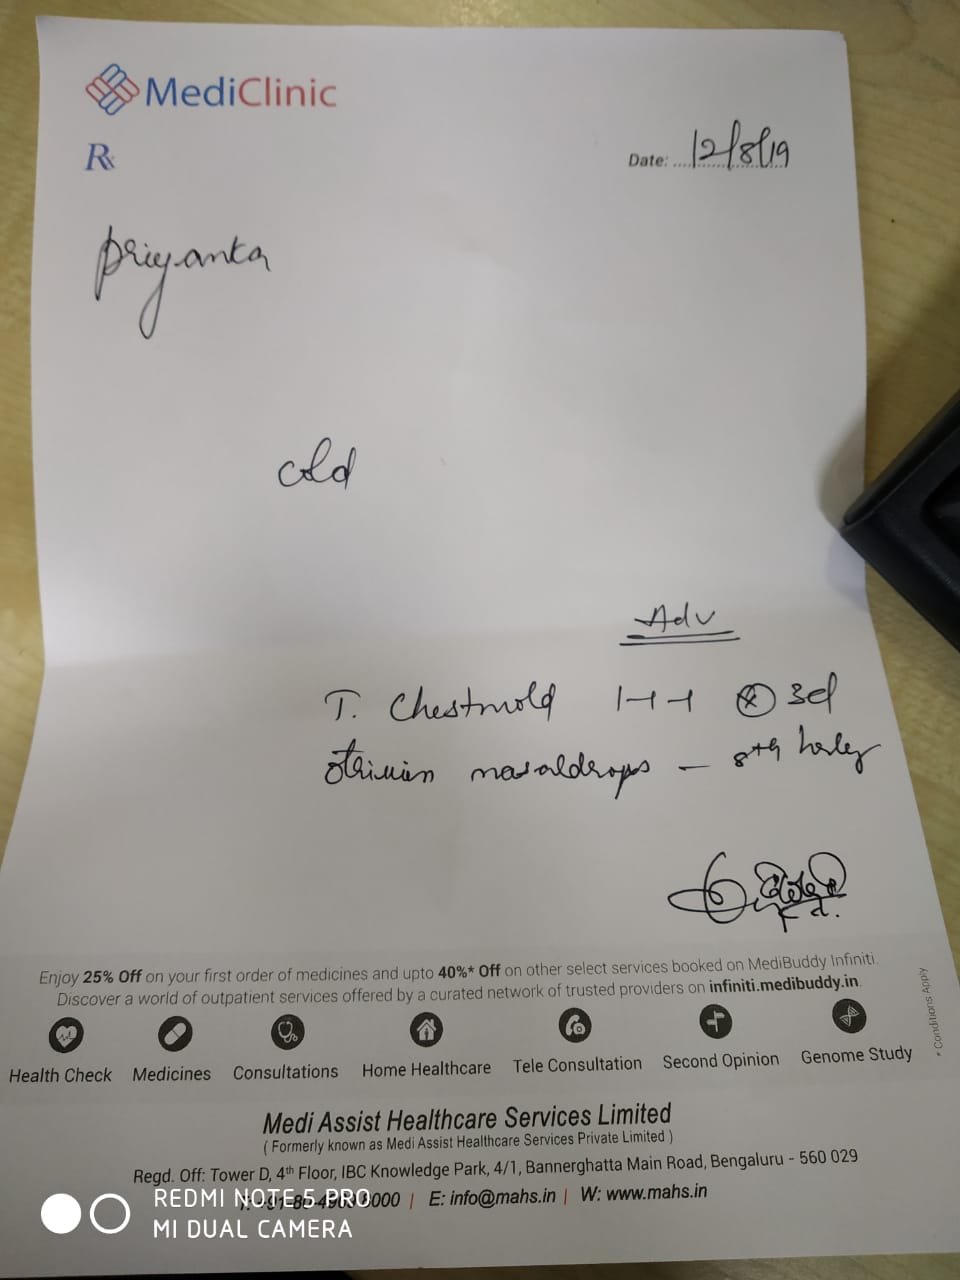 MediClinic
Rx
Date: 12/8/19
Priyanka
cold
Adv
T. Chestmold 1-1-1 x 3d
otrivin nasal drops - 8th hrly
Enjoy 25% Off on your first order of medicines and upto 40%* Off on other select services booked on MediBuddy Infiniti.
Discover a world of outpatient services offered by a curated network of trusted providers on infiniti.medibuddy.in
* Conditions Apply
Health Check Medicines Consultations Home Healthcare Tele Consultation Second Opinion Genome Study
Medi Assist Healthcare Services Limited
( Formerly known as Medi Assist Healthcare Services Private Limited )
Regd. Off: Tower D, 4th Floor, IBC Knowledge Park, 4/1, Bannerghatta Main Road, Bengaluru - 560 029
E: info@mahs.in | W: www.mahs.in
REDMI NOTE 5 PRO
MI DUAL CAMERA